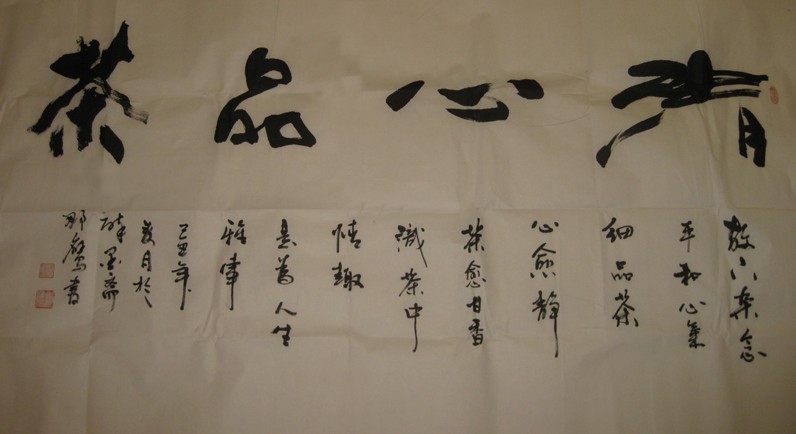 清心品茶
放下杂念
平和心气
细品茶
心愈静
茶愈甘香
识茶中
情趣
是为人生
雅事
己丑年
夏月於
醉墨斋